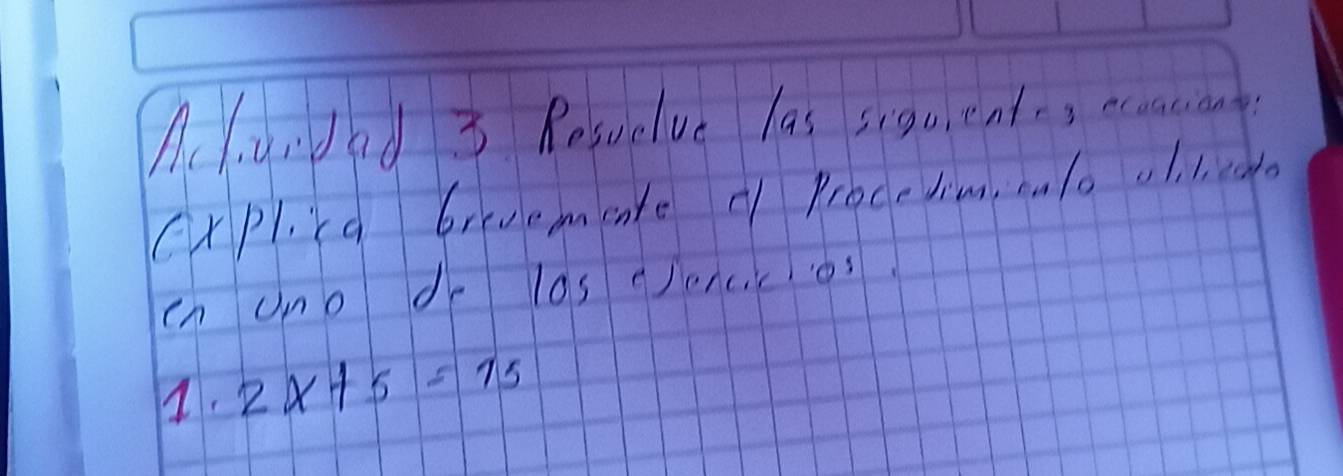 Actividad 3 Resuelve las siguientes ecuaciones:
explica brevemente el Procedimiento utilizado
en uno de los ejercicios.
1. 2x+5=15